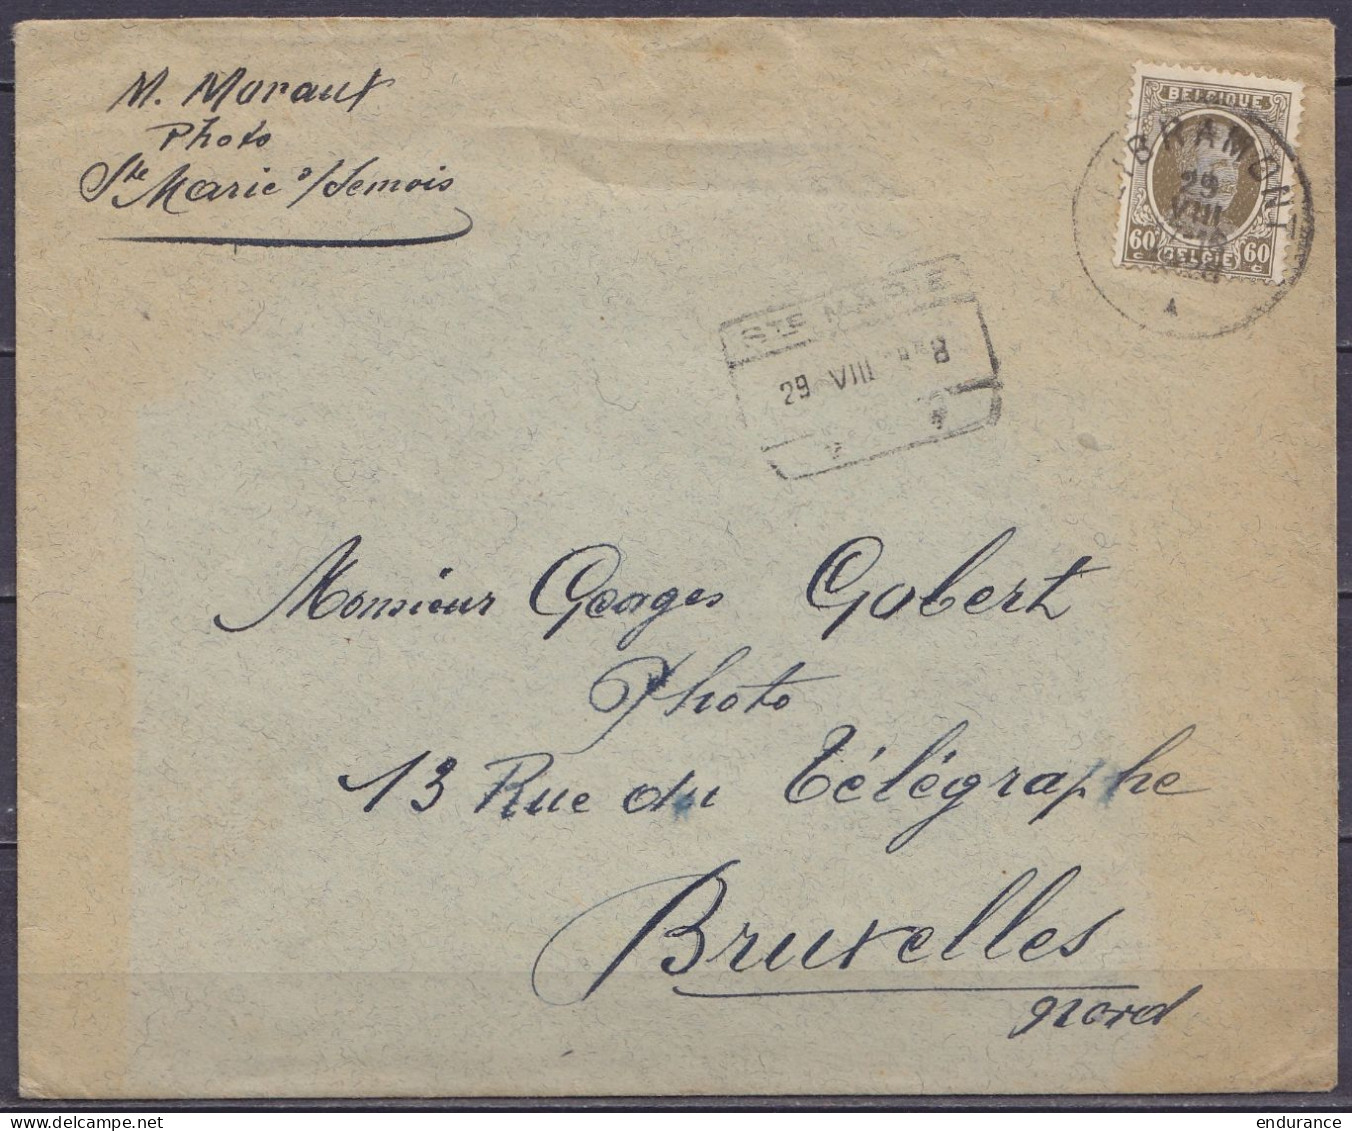 M. Moraux
Photo
Ste Marie s/Semois
BELGIQUE
LIBRAMONT
29
VIII
60 BELGIE 60
STE MARIE
29 VIII
Monsieur Georges Gobert
Photo
13 Rue du Télégraphe
Bruxelles
Nord
endurance